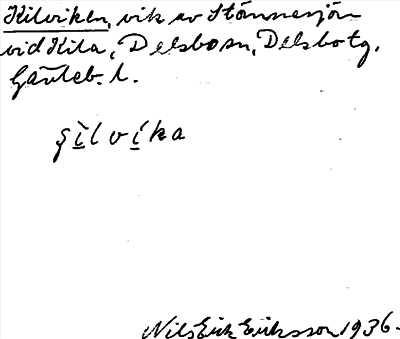 Kilviken, vik av Stömnesjön
vid Kila, Delsbo sn, Delsbo tg.
Gävleb. l.
ṣi̲lvi̲ka
Nils Erik Eriksson 1936.